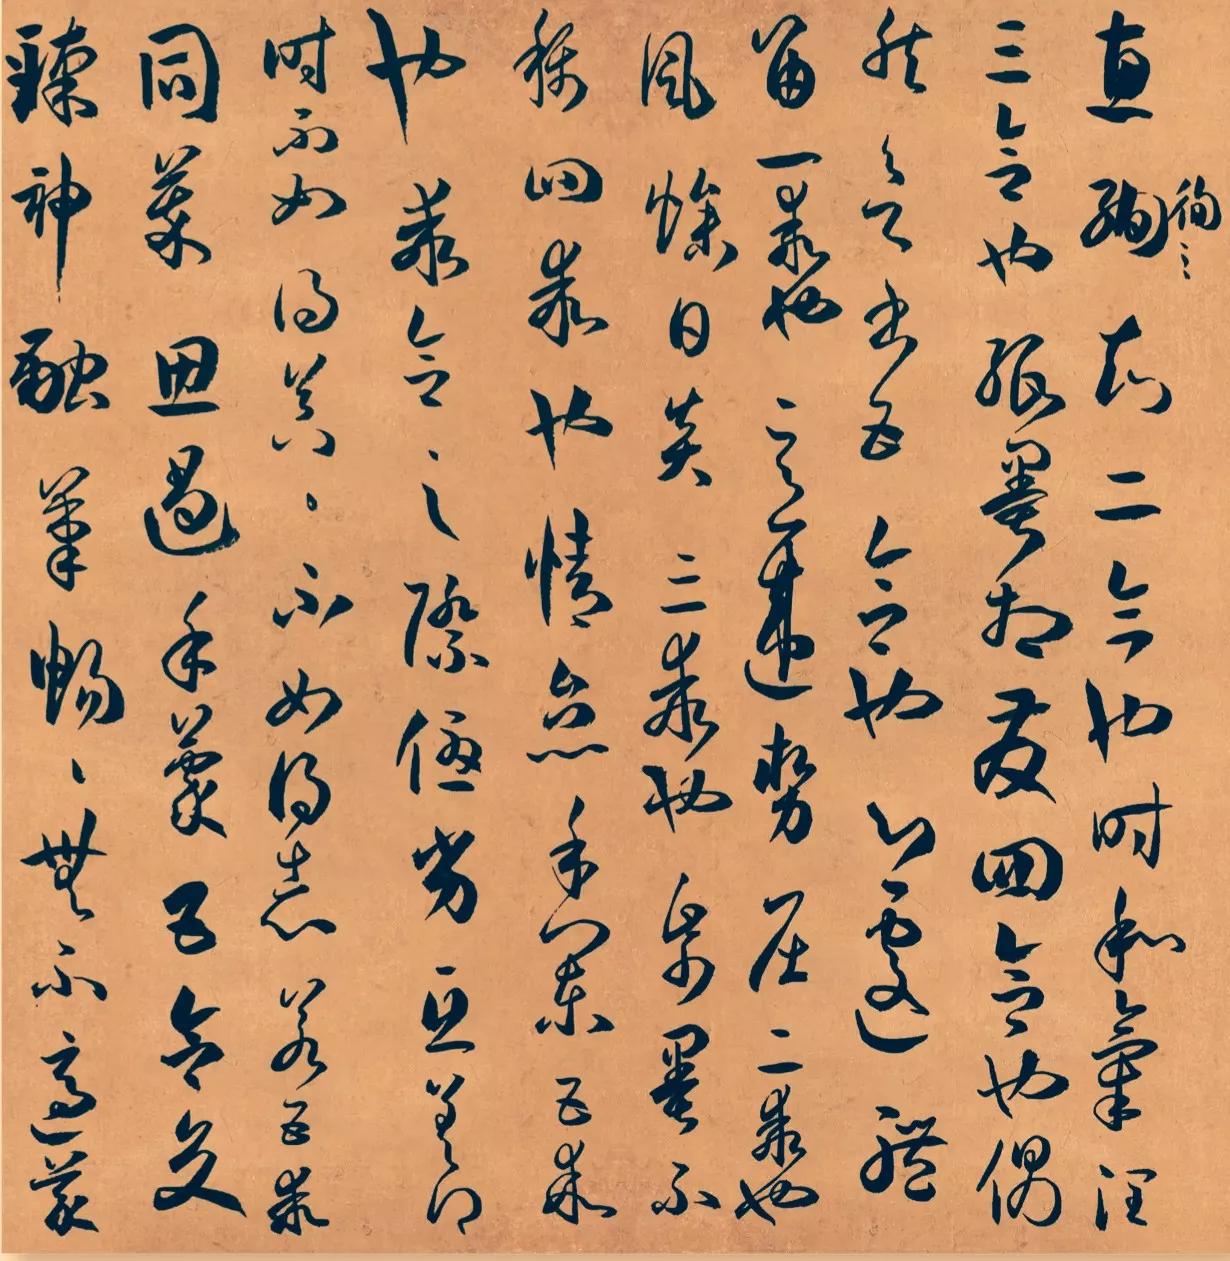 惠徇知二合也時和氣潤
徇
三合也紙墨相發四合也偶
然欲書五合也心遽體
留一乖也意違勢屈二乖也
風燥日炎三乖也紙墨不
稱四乖也情怠手闌五乖
也乖合之際優劣互差得
時不如得器〻不如得志若五乖
同萃思遏手蒙五合交
臻神融筆暢〻無不適蒙